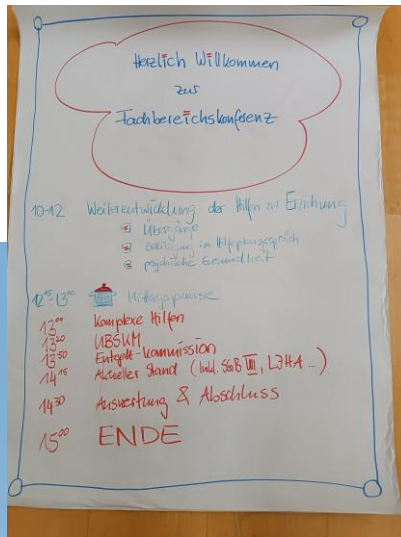 Herzlich Willkommen
zur
Fachbereichskonferenz
10-12 Weiterentwicklung der Hilfen zur Erziehung
Übergänge
Beteiligung im Hilfeplangespräch
psychische Gesundheit
12¹⁵-13⁰⁰ Mittagspause
13⁰⁰ Komplexe Hilfen
13²⁰ UBSKM
13⁵⁰ Entgelt-Kommission
14¹⁵ Aktueller Stand (inkl. SGB VIII, LJHA ...)
14³⁰ Auswertung & Abschluss
15⁰⁰ ENDE